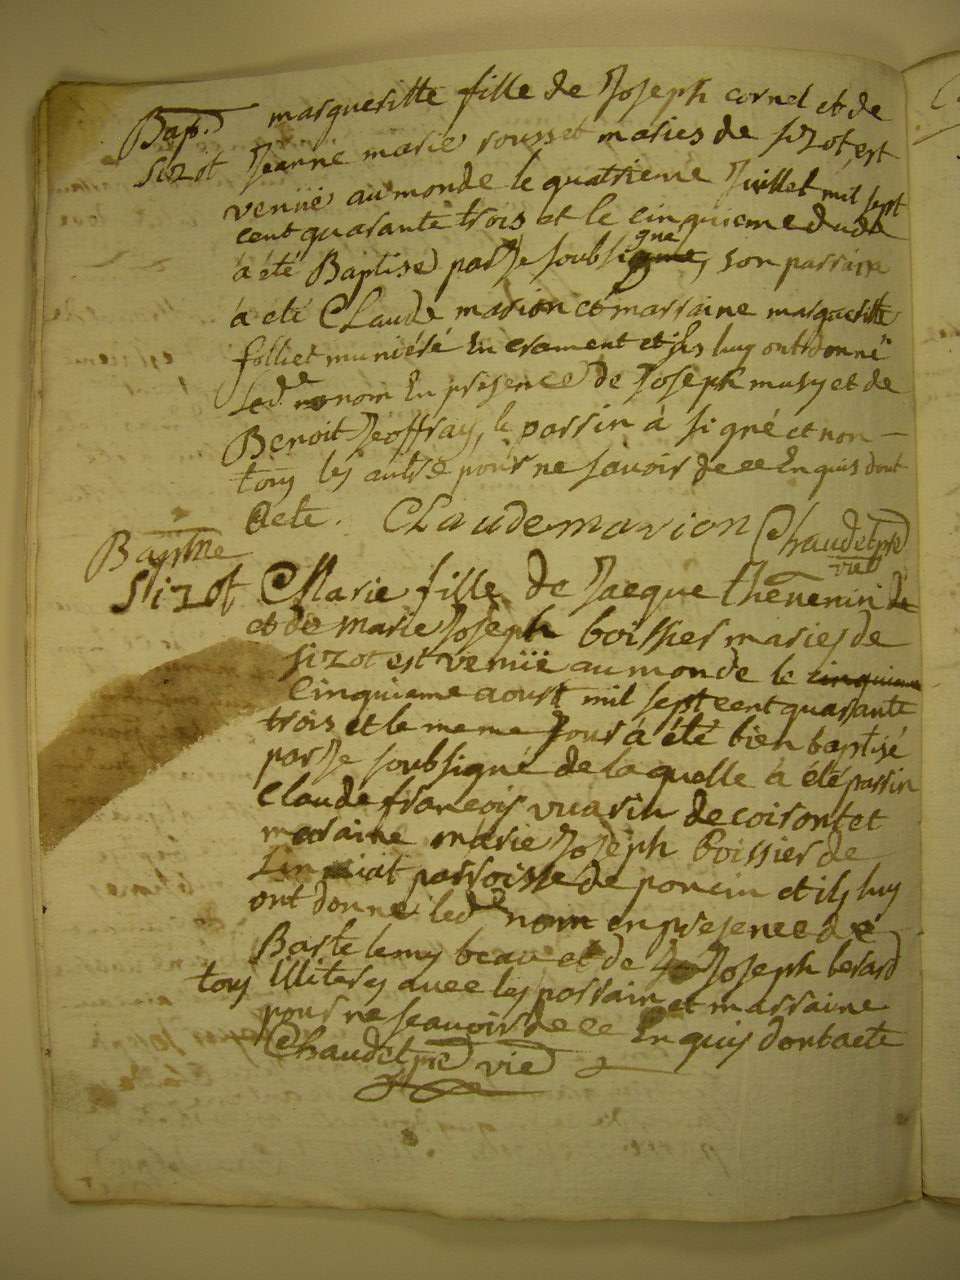 Bap.
sizot
margueritte fille de Joseph cornet et de
Jeanne marie rousset maries de sizot, est
venüe au monde le quatrieme Juillet mil sept
cent quarante trois et le cinquieme dudt
a été Baptisé par Je soubsigne, son parrain
a eté Claude marion et marraine margueritte
folliet et ils luy ont donné
led.e nom En presence de Joseph musy et de
Benoit Jeoffray, le parsin à signé et non
tous les autre pour ne savoir de ce Enquis dont
acte. Claude marion Chaudet pre
vie
Baptme
Sizot
Marie fille de Jacque thevenin
et de Marie Joseph boissier maries de
sizot est venüe au monde le cinquieme
cinquieme aoust mil sept cent quarante
trois et le meme Jour à été bien baptisé
par Je soubsigné de laquelle à été parsin
Claude francois vuarin de coiron et
maraine marie Joseph boissier de
parroisse de poncin et ils luy
ont donne led.e nom en presence de
Bartelemy beau et de Joseph berard
tous illiteres avec les parrain et marraine
pour ne scauoir de ce Enquis dont acte
Chaudet pre vie